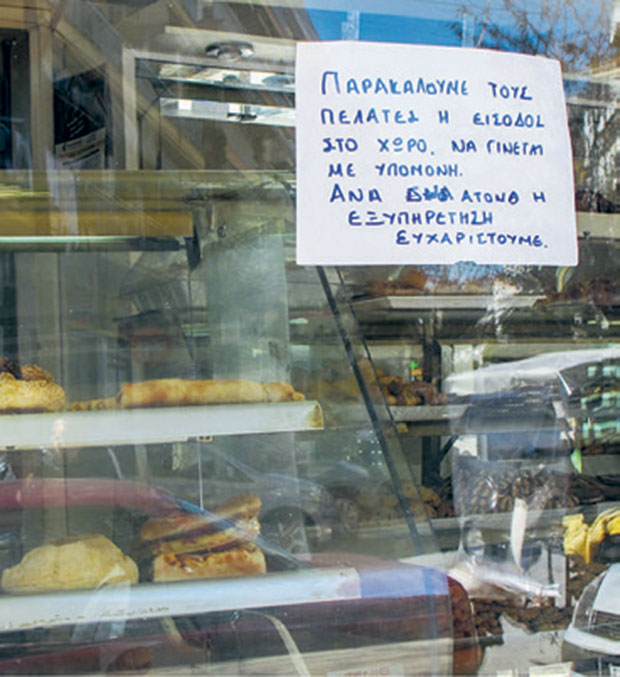 ΠΑΡΑΚΑΛΟΥΝΕ ΤΟΥΣ
ΠΕΛΑΤΕΣ Η ΕΙΣΟΔΟΣ
ΣΤΟ ΧΩΡΟ. ΝΑ ΓΙΝΕΤΑΙ
ΜΕ ΥΠΟΜΟΝΗ.
ΑΝΑ ΑΤΟΜΟ Η
ΕΞΥΠΗΡΕΤΗΣΗ
ΕΥΧΑΡΙΣΤΟΥΜΕ.